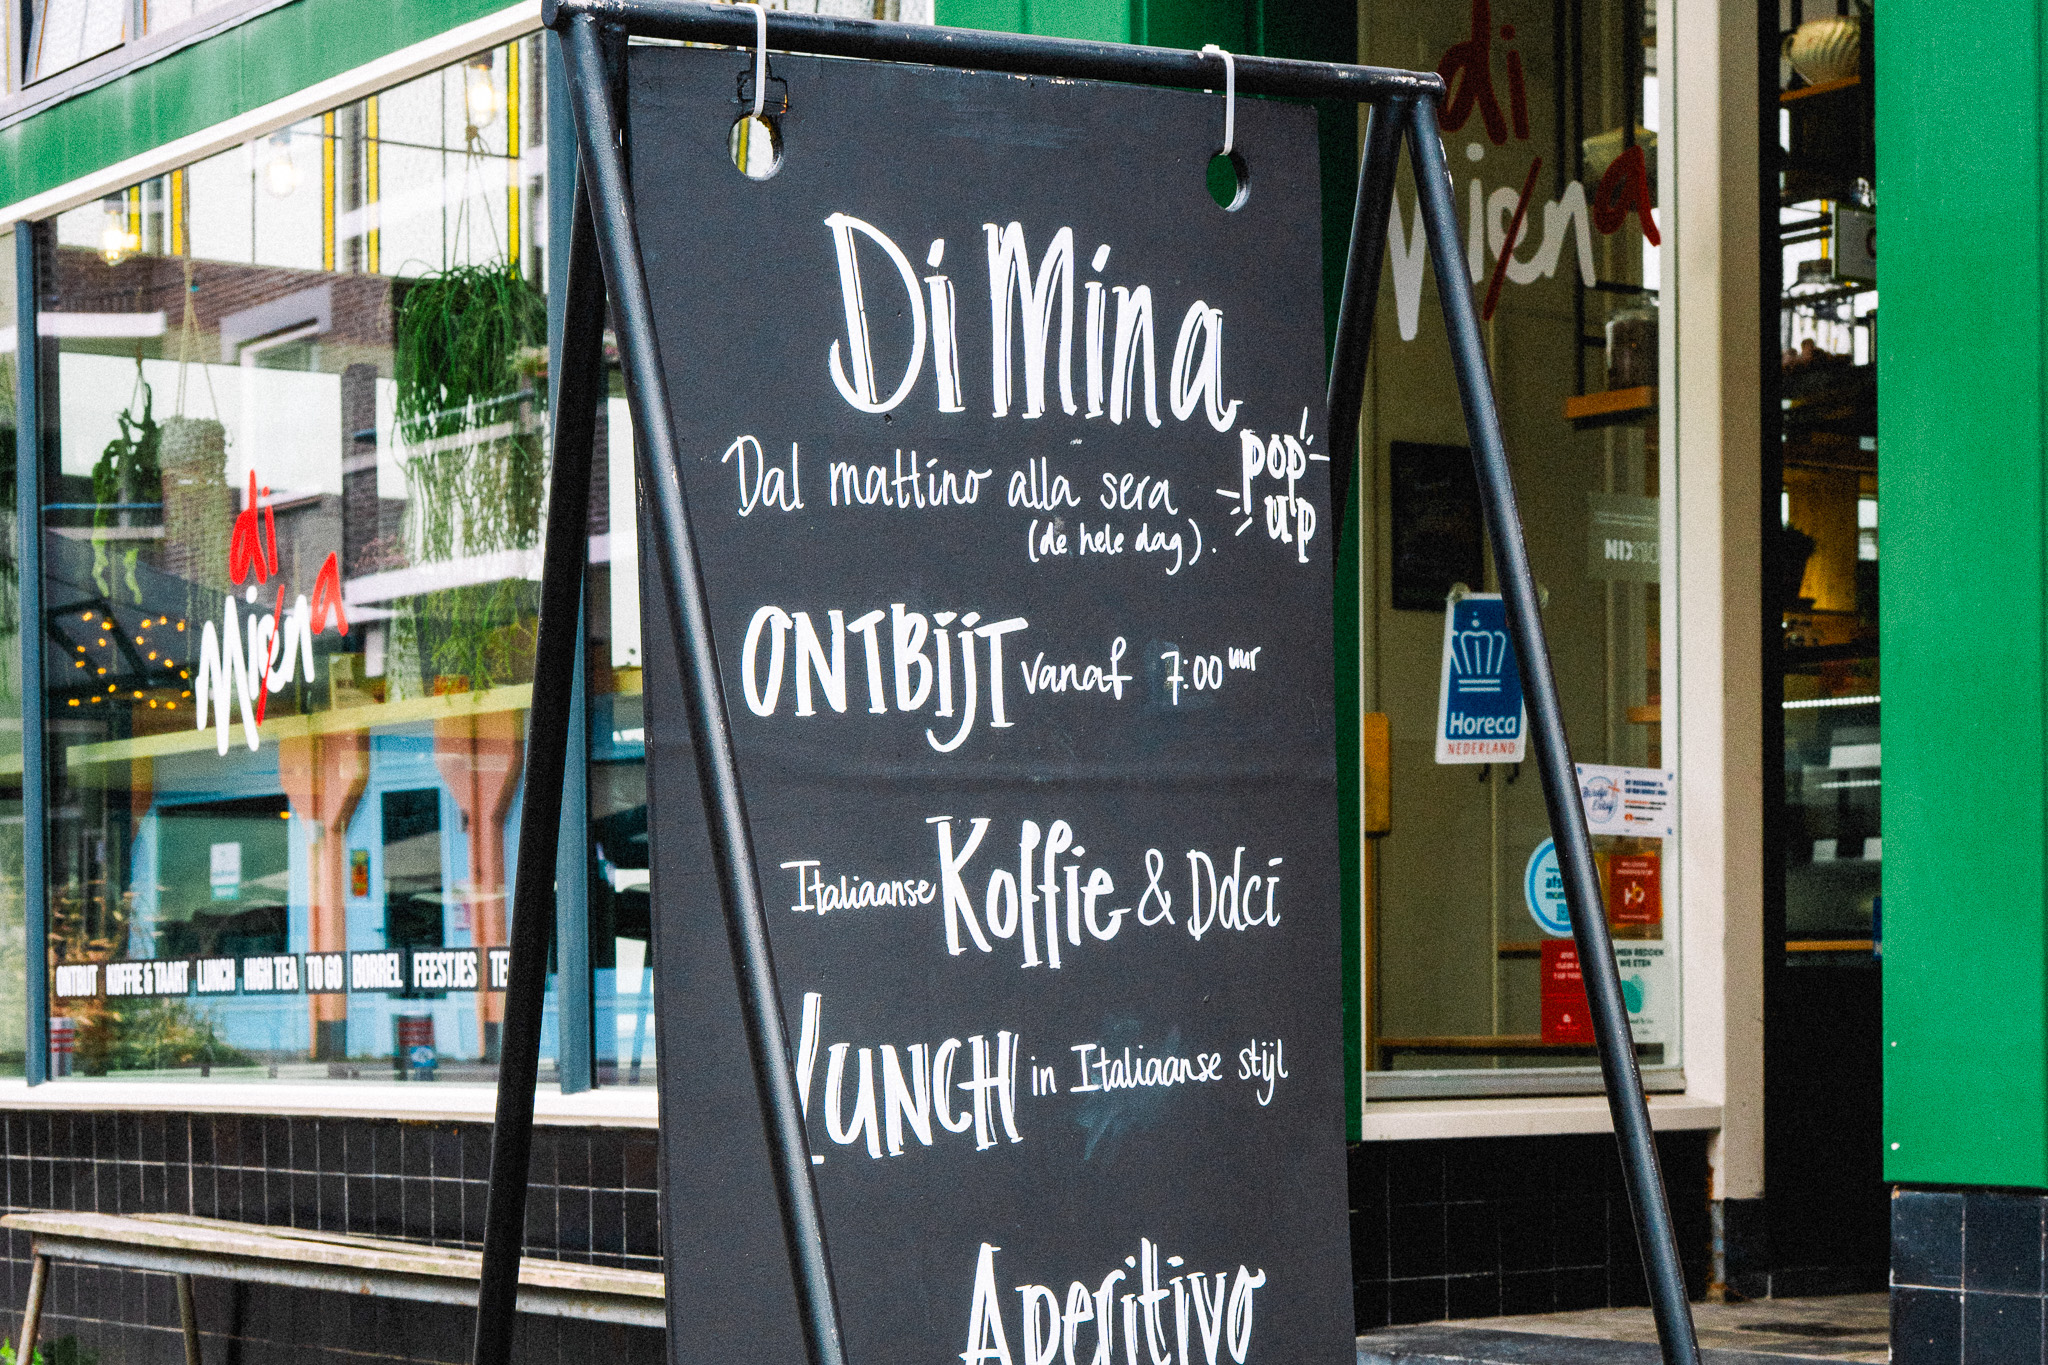 Di Mina
Dal mattino alla sera
(de hele dag).
pop
up
ONTBIJT vanaf 7:00 uur
Italiaanse Koffie & Dolci
LUNCH in Italiaanse stijl
Aperitivo
di
Miena
di
Miena
ONTBIJT KOFFIE & TAART LUNCH HIGH TEA TO GO BORREL FEESTJES TE
Horeca
NEDERLAND